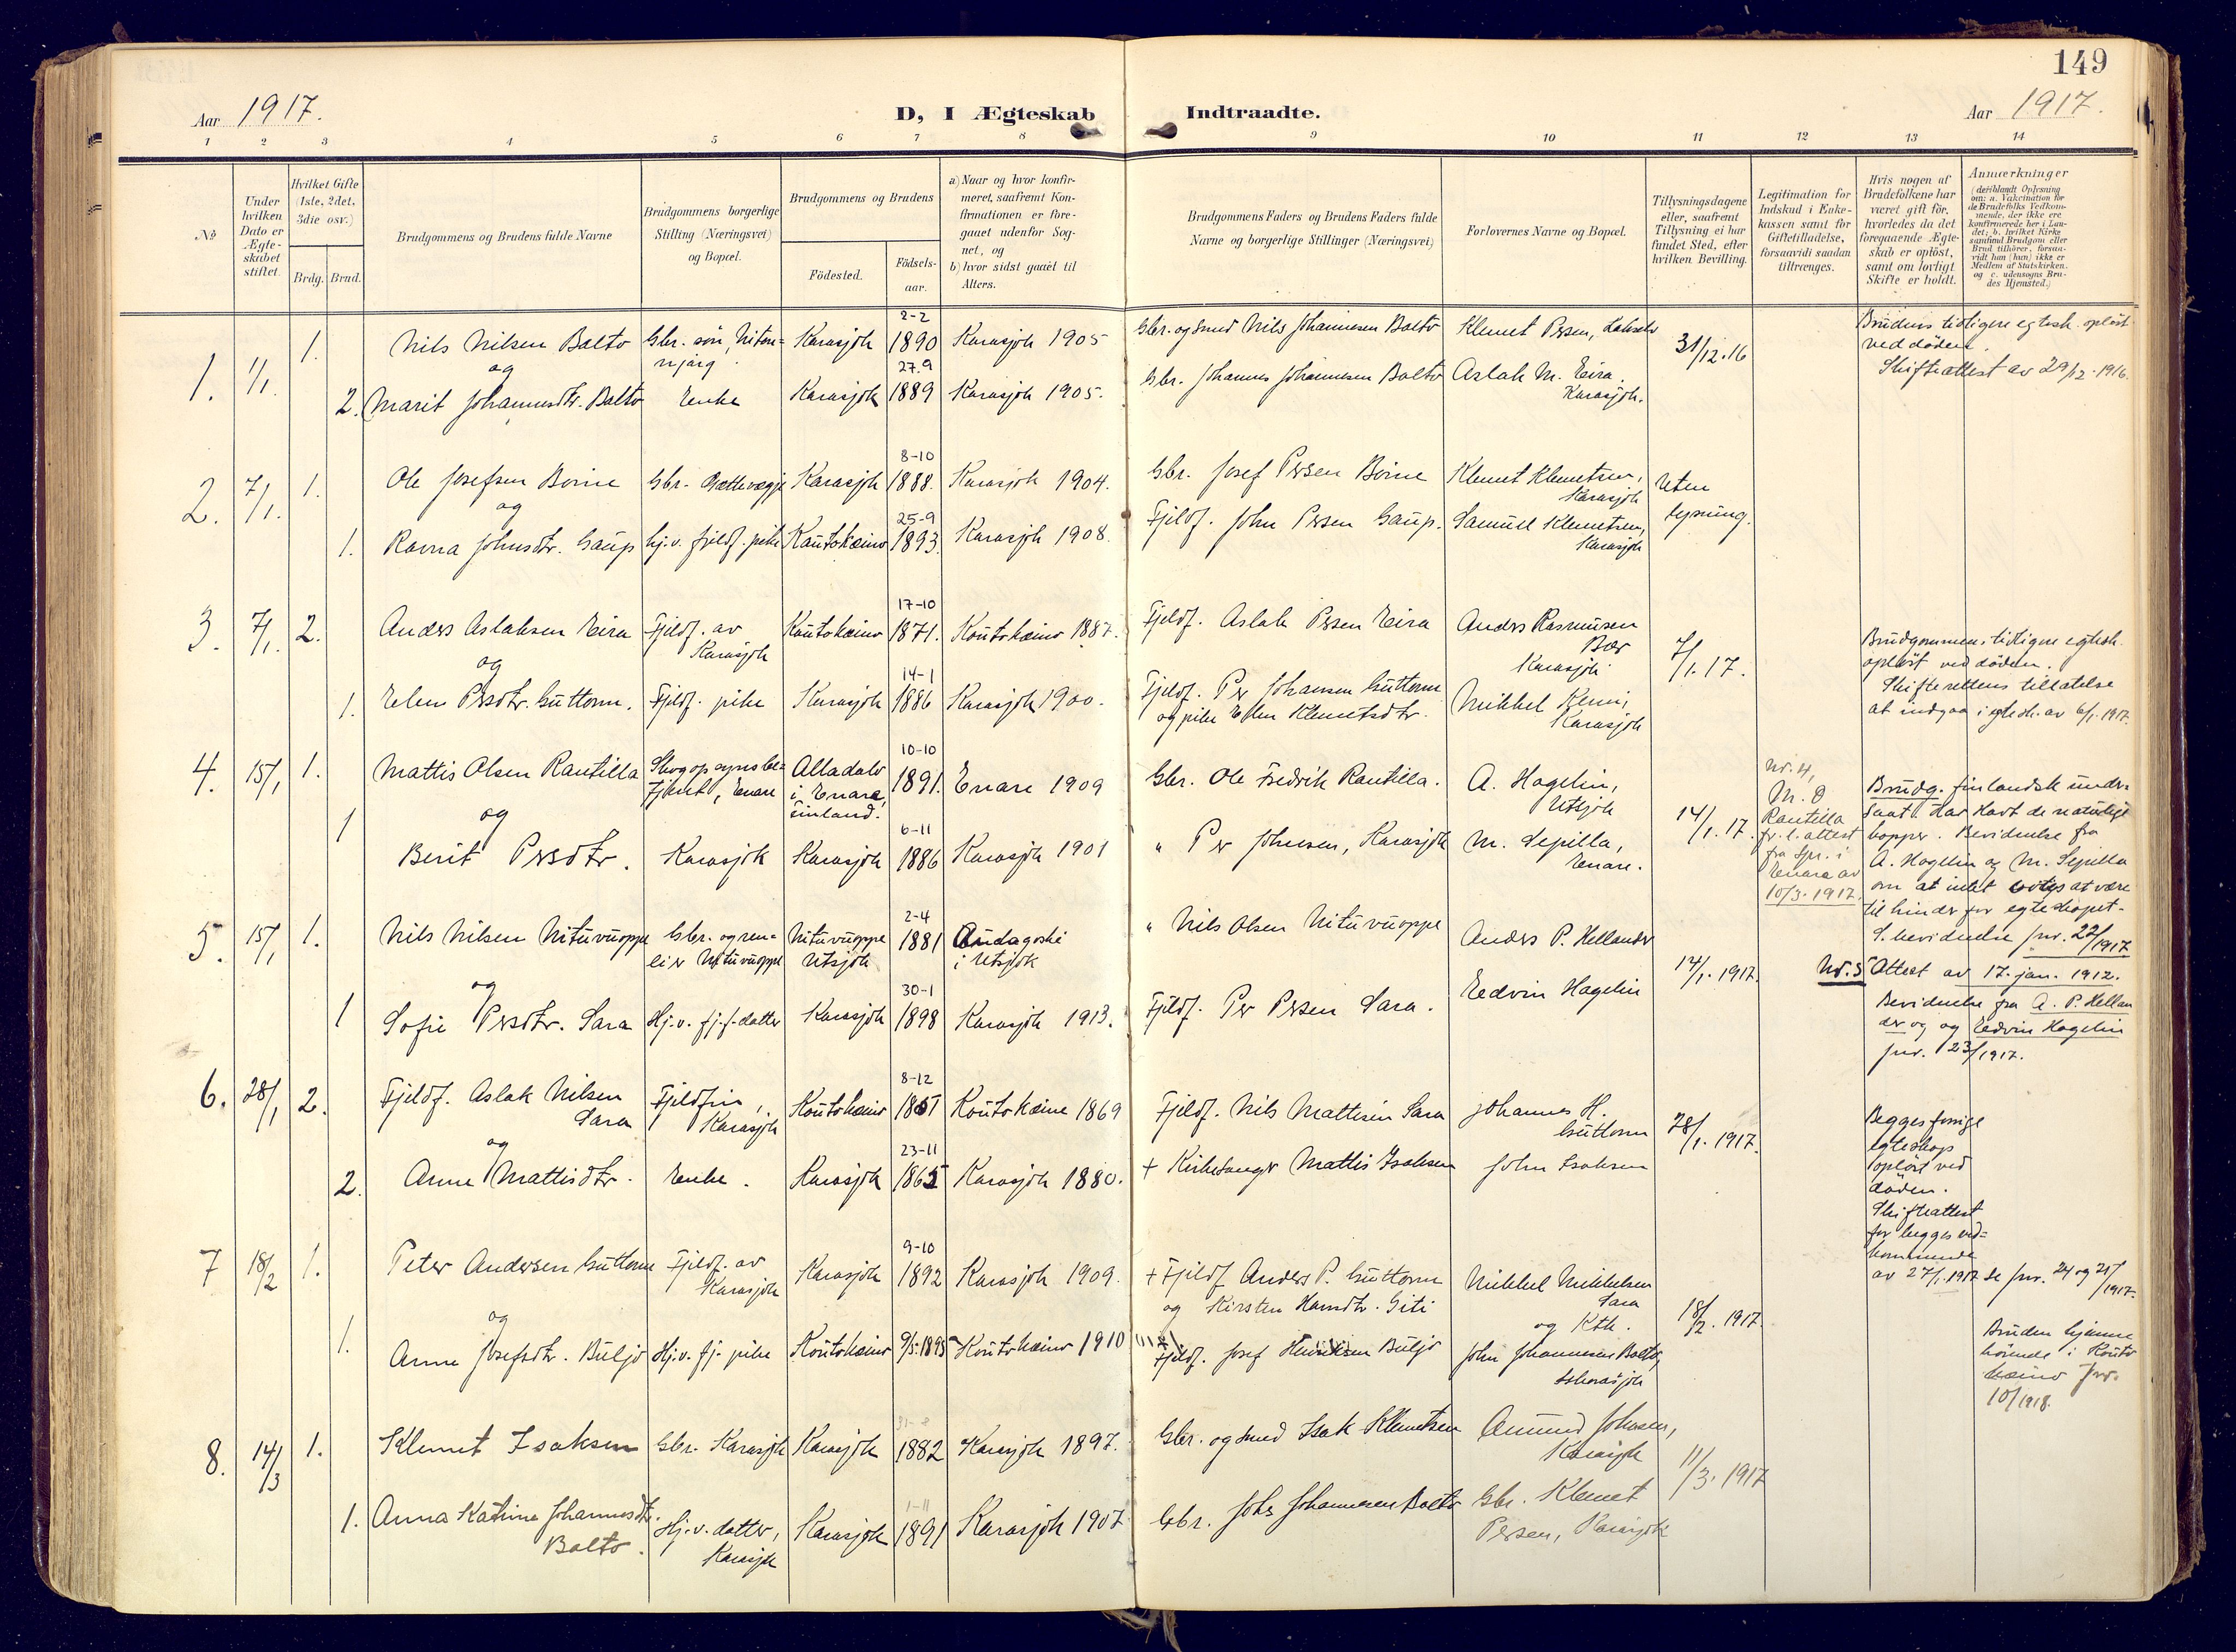 149
Aar 1917.
D, I Ægteskab Indtraadte.
Aar 1917.
1 2 3 4 5 6 7 8 9 10 11 12 13 14
№
Under hvilken Dato er Ægteskabet stiftet.
Hvilket Gifte (1ste, 2det, 3die osv.)
Brdg. Brud.
Brudgommens og Brudens fulde Navne
Brudgommens borgerlige Stilling (Næringsvei) og Bopæl.
Brudgommens og Brudens
Födested.
Födsels-aar.
a) Naar og hvor konfir-
meret, saafremt Kon-
firmationen er fore-
gaaet udenfor Sog-
net, og
b) hvor sidst gaaet til
Alters.
Brudgommens Faders og Brudens Faders fulde
Navne og borgerlige Stillinger (Næringsvei)
Forlovernes Navne og Bopæl.
Tillysningsdagene
eller, saafremt
Tillysning ei har
fundet Sted, efter
hvilken Bevilling.
Legitimation for
Indskud i Enke-
kassen samt for
Giftetilladelse,
forsaavidt saadan
tiltrænges.
Hvis nogen af
Brudefolkene har
været gift för,
hvorledes da det
foregaaende Ægte-
skab er oplöst,
samt om lovligt
Skifte er holdt.
Anmærkninger
(deriblandt Oplysning
om: a. Vakcination for
de Brudefolks Vedkom-
mende, der ikke ere
konfirmerede her i Lan-
det; b. hvilket Kirke
samfund Brudgom eller
Brud tilhörer, forsaa-
vidt han (hun) ikke er
Medlem af Statskirken.
og c. udensogns Bru-
des Hjemsted.)
1. 1/1. 1. Nils Nilsen Balto Gbr. sön, Karasjok 2-2 1890 Karasjok 1905 Gbr. og smed Nils Johannesen Balto Klemet Persen, 31/12.16
og
2. Marit Johannesdtr. Balto Enke Karasjok 27.9 1889 Karasjok 1905. Gbr. Johannes Johannesen Balto Aslak M. Eira. Karasjok.
Brudens tidligere egtesk. oplöst
ved döden.
Skifteattest av 29/12-1916.
2. 7/1. 1. Ole Josefsen Boine Gbr. Karasjok 8-10 1888. Karasjok 1904. Gbr. Josef Persen Boine Klemet Klemetsen, Karasjok Uten
og
1. Ravna Johnsdtr. Gaup hj.v. fjeldf. pike Kautokeino 25-9 1893. Karasjok 1908. Fjeldf. John Persen Gaup. Samuel Klemetsen, Karasjok lysning.
3. 7/1. 2. Anders Aslaksen Eira Fjeldf. av Karasjok Koutokeino 17-10 1871. Koutokeino 1887. Fjeldf. Aslak Persen Eira Anders Rasmusen Bær Karasjok 7/1.17.
og
1. Elen Persdtr. Guttorm. Fjeldf. pike Karasjok 14-1 1886 Karasjok 1900. Fjeldf. Per Johansen Guttorm
og pike Ellen Klemetsdtr. Mikkel Kemi, Karasjok
Brudgommens tidligere egtesk.
oplöst ved döden.
Skifterettens tillatelse
at indgaa i egtesk. av 6/1.1917.
4. 15/1 1. Mattis Olsen Rautilla Skogopsynsbe-
tjent, Enare Alladalo
i Enare,
Finland. 10-10 1891. Enare 1909 Gbr. Ole Fredrik Rautilla. A. Hagelin, Utsjok 14/1.17.
og
1 Berit Persdtr. Karasjok Karasjok 6-11 1886 Karasjok 1901 " Per Johnsen, Karasjok M. Sepilla, Enare.
Nr. 4,
M. O
Rautilla
fr. l. attest
fra Spr. i
Enare av
10/3.1917.
Brudg. finlandsk under-
saat. Har havt de naturlige
kopper. Bevidnelse fra
A. Hagelin og M. Sepilla
om at intet vites at være
til hinder for egteskapet.
S. bevidnelse jnr. 22/1917
5. 15/1 1. Nils Nilsen Nituvuoppe Gbr. og ren-
eier Nituvuoppe Nituvuoppe Utsjok 2-4 1881 i Utsjok " Nils Olsen Nituvuoppe Anders P. Hellander 14/1.1917.
og
1 Sofie Persdtr. Sara Hj.v. fj.f. datter Karasjok 30-1 1898 Karasjok 1913. Fjeldf. Per Persen Sara. Edvin Hagelin
Nr. 5 Attest av 17. jan. 1912.
Bevidnelse fra A. P. Hellan
der og og Edvin Hagelin
jnr. 23/1917.
6. 28/1 2. Fjeldf. Aslak Nilsen Sara Fjeldfin, Karasjok Koutokeino 8-12 1851 Koutokeino 1869 Fjeldf. Nils Mattisen Sara Johannes H. Guttorm 28/1.1917.
og
2. Anne Mattisdtr. Enke. Karasjok 23-11 1865 Karasjok 1880. + Kirkesanger Mattis Isaksen John Isaksen
Begges forrige
egteskap
oplöst ved
döden.
Skifteattest
for begges ved-
kommende
av 27/1.1917 Se jnr. 24 og 25/1917.
7 18/2 1. Peter Andersen Guttorm Fjeldf. av Karasjok Karasjok 9-10 1892 Karasjok 1909. + Fjeldf Anders P. Guttorm
og Kirsten Hansdtr. Siti Mikkel Mikkelsen Sara
og Ktk. 18/2.1917.
og
1. Anne Josefsdtr. Buljo Hj.v. fj. pike Koutokeino 9/5.1895 Koutokeino 1910 Fjeldf. Josef Henriksen Buljo John Johannesen Balto, Karasjok
Bruden hjemme
hörende i Kouto
keino jnr.
10/1918.
8. 14/3 1. Klemet Isaksen Gbr. Karasjok Karasjok 1882 Karasjok 1897. Gbr. og smed Isak Klemetsen Amund Johnsen, Karasjok 11/3.1917
1. Anna Katrina Johannesdtr. Balto. Hj.v. datter, Karasjok Karasjok 1-11 1891 Karasjok 1907 Gbr. Johs Johannesen Balto Gbr. Klemet
Persen, Karasjok